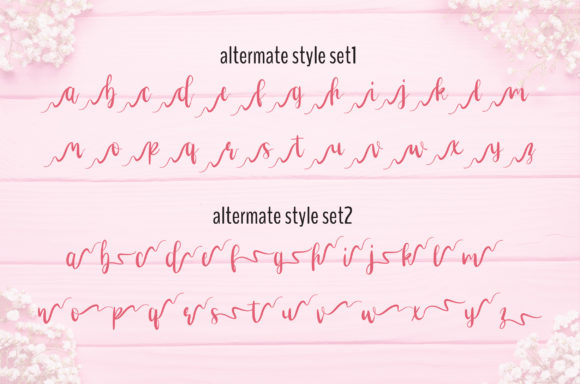 altermate style set1
a b c d e f g h i j k l m
n o p q r s t u v w x y z
altermate style set2
a b c d e f g h i j k l m
n o p q r s t u v w x y z